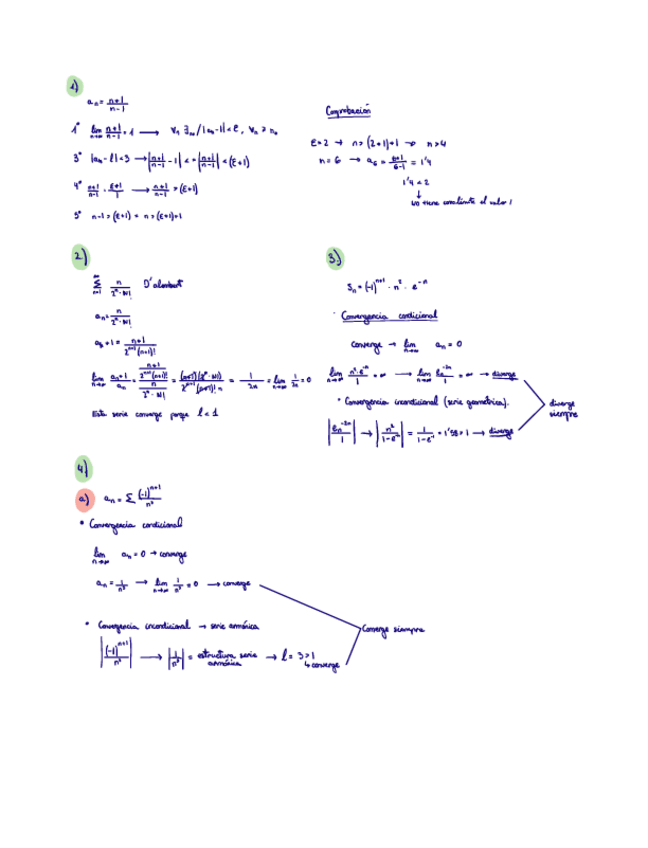 1)
aₙ = n+1/n-1
1º lim n→∞ n+1/n-1 = 1 → 
3º |aₙ - l| < 3 → |n+1/n-1 - 1| < = |n+1/n-1| < (ε+1)
4º n+1/n-1 · ε+1/1 → n+1/n-1 > (ε+1)
5º n-1 > (ε+1) = n > (ε+1)+1
Comprobación
ε=2 → n > (2+1)+1 → n > 4
n = 6 → a₆ = 6+1/6-1 = 1'4
1'4 < 2
↓
2)
∑ n=1 ∞ n/2ⁿ·n! D'alembert
aₙ = n/2ⁿ·n!
n+1/2ⁿ⁺¹(n+1)!
lim n→∞ aₙ+1/aₙ = n+1/2ⁿ⁺¹(n+1)! / n/2ⁿ·n! = (n+1)(2ⁿ·n!)/2ⁿ⁺¹(n+1)!·n = 1/2n = lim n→∞ 1/2n = 0
Esta serie converge porque l < 1
3)
Sₙ = (-1)ⁿ⁺¹ · n² · e⁻ⁿ
· Convergencia condicional
converge → lim n→∞ aₙ = 0
lim n→∞ n²·e⁻ⁿ/1 = ∞ → = ∞ → diverge
• Convergencia incondicional (serie geométrica).
→ |n²/1-e⁻ⁿ| = 1/1-e⁻¹ = 1'58 > 1 → diverge
diverge
siempre
4)
a) aₙ = ∑ (-1)ⁿ⁺¹/n³
• Convergencia condicional
lim n→∞ aₙ = 0 → converge
aₙ = 1/n³ → lim n→∞ 1/n³ = 0 → converge
• Convergencia incondicional → serie armónica
|(-1)ⁿ⁺¹/n³| → |1/n³| = estructura serie armónica → l = 3 > 1
↳ converge
Converge siempre